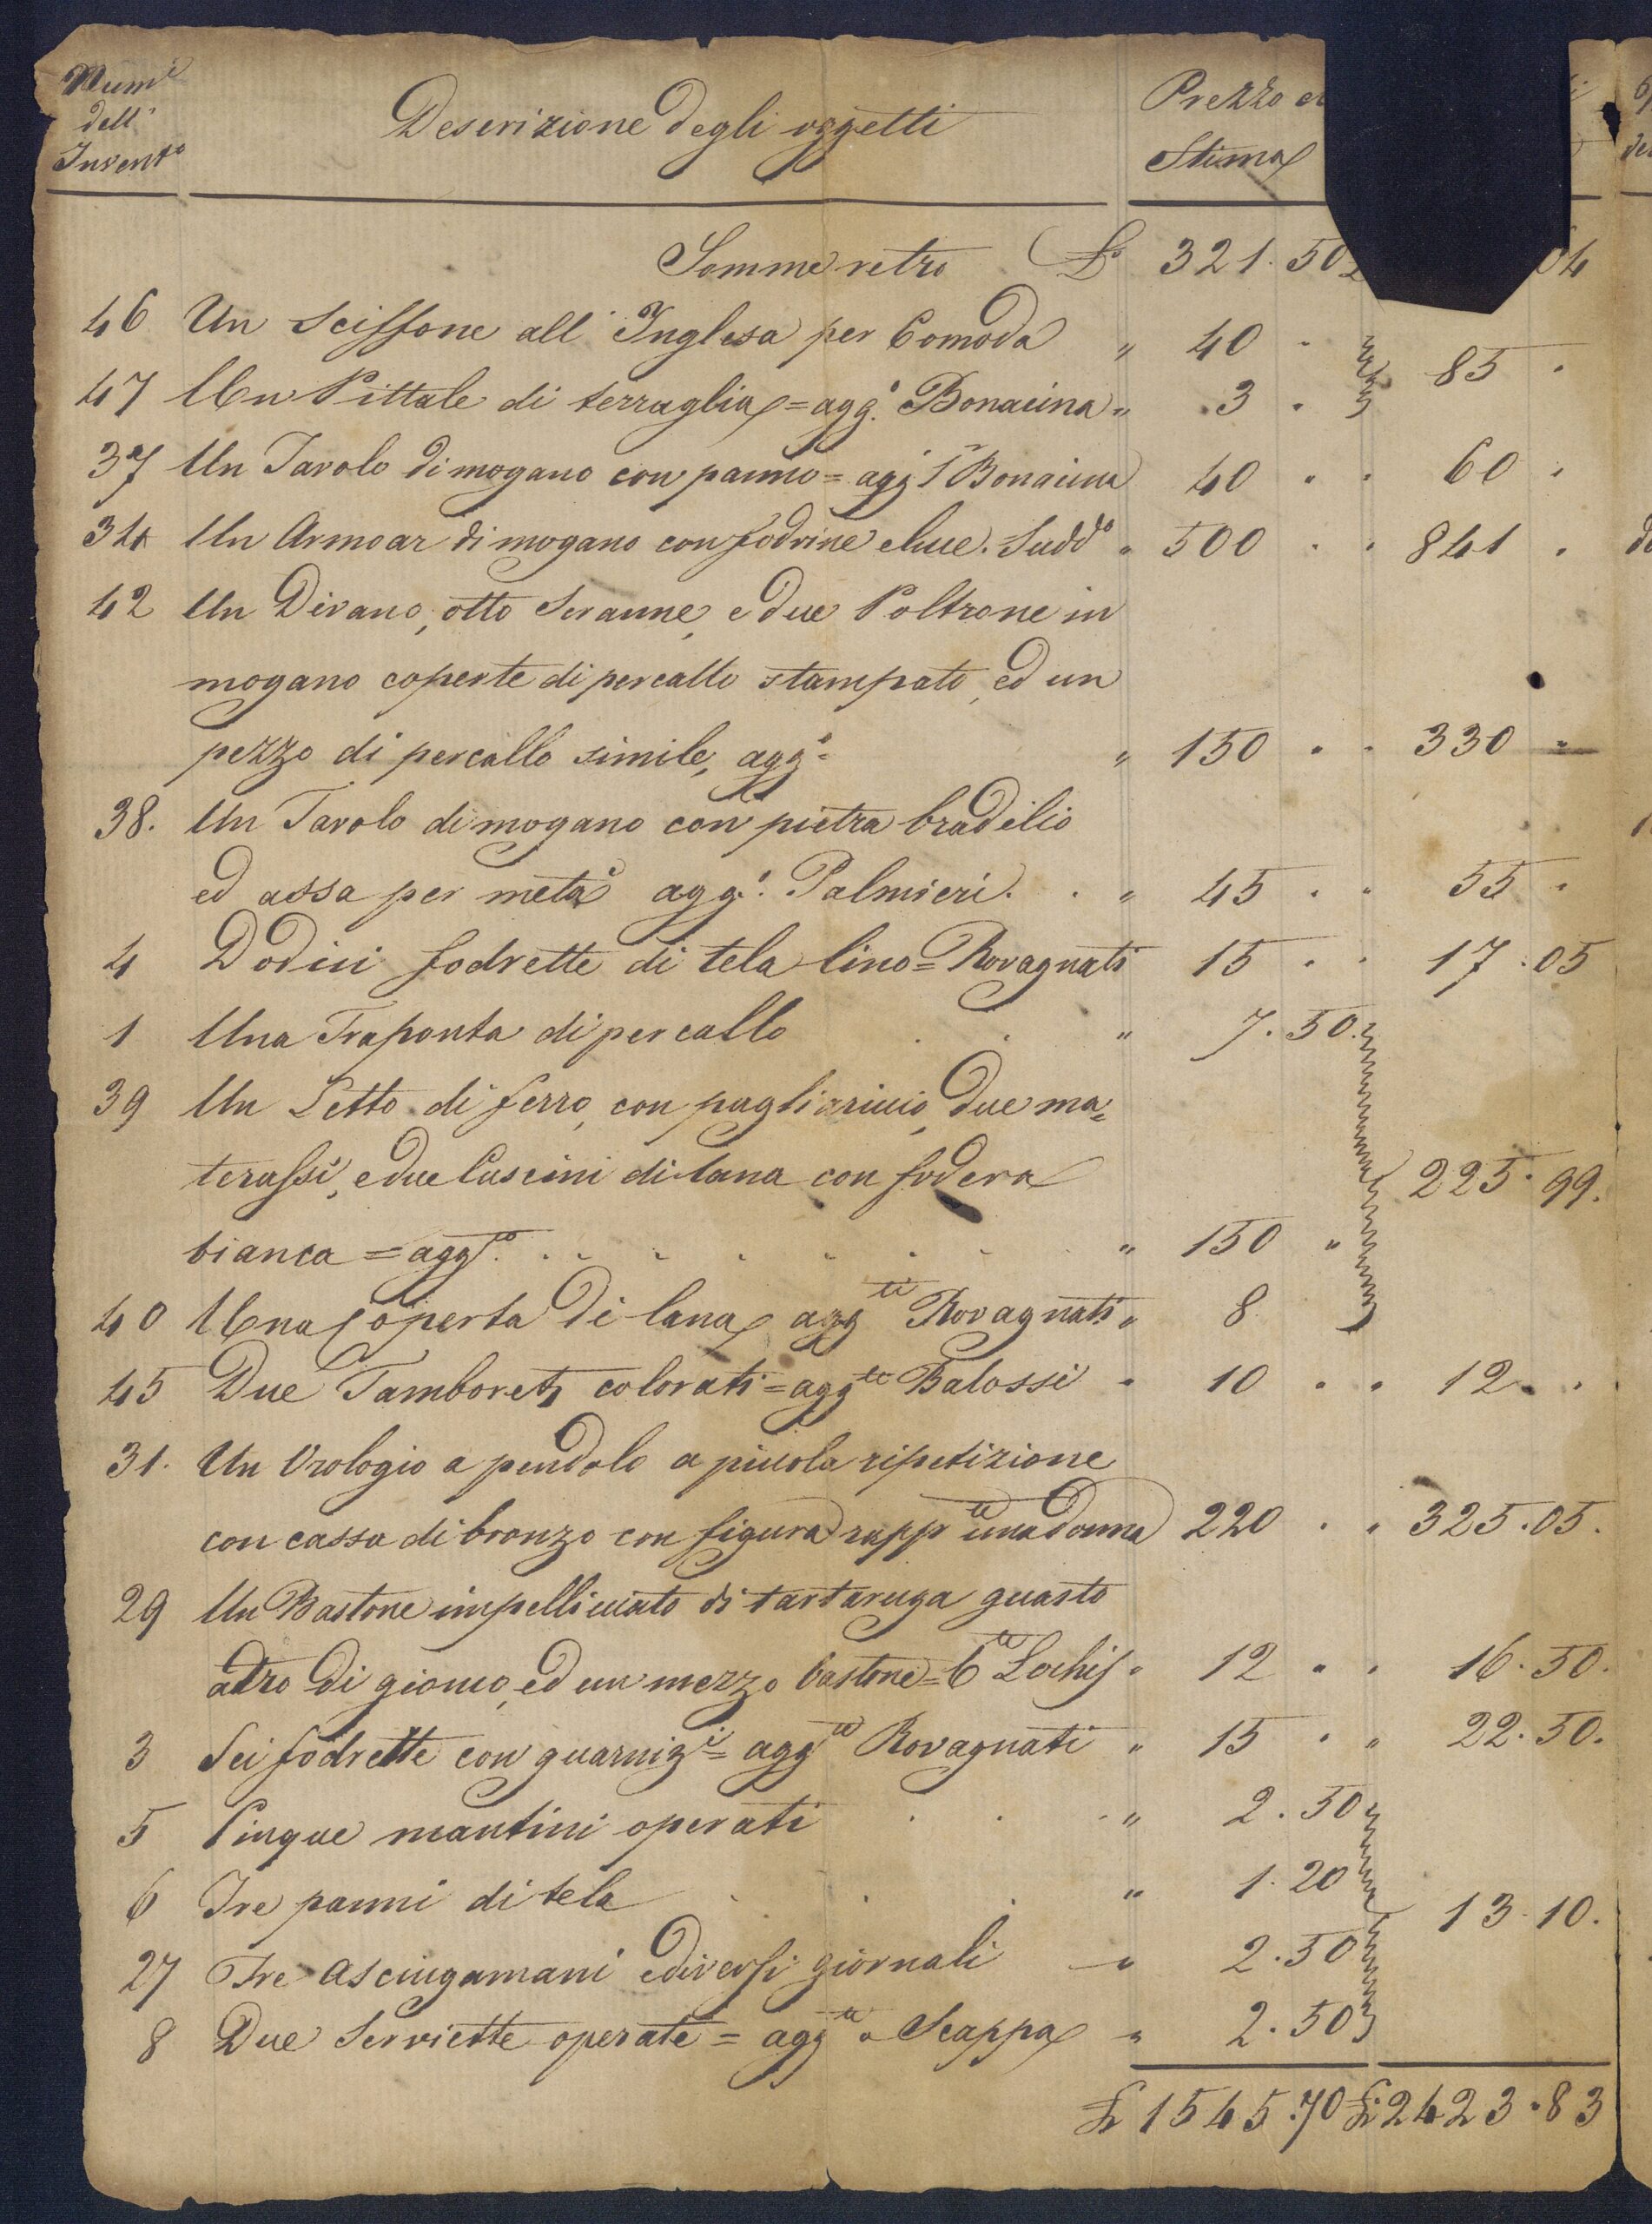 Num.i
dell'
Invent.o
Descrizione degli oggetti
Prezzo
Stima
Somme retro L. 321.50 04
46 Un Sciffone all'Inglesa per Comoda " 40 .
85 .
47 Un Pittale di terraglia = agg.o Bonacina " 3 .
37 Un Tavolo di mogano con panno = agg.o Bonacina 40 " " 60 "
34 Un Armoar di mogano con fodrine e Sudd.o " 500 " " 841 "
42 Un Divano, otto Scranne, e due Poltrone in
mogano coperte di percallo stampato, ed un
pezzo di percallo simile, agg.o " 150 " " 330 "
38. Un Tavolo di mogano con pietra bradilio
ed assa per metà agg.o Palmieri. . " 45 " " 55 "
4 Dodici fodrette di tela lino = Rovagnati 15 " " 17.05
1 Una Traponta di percallo . . " 7.50.
39 Un Letto di ferro, con pagliariccio, due ma=
terassi, e due Cuscini di lana con fodera
225.99.
bianca = agg.to . . . . . . . " 150 "
40 Una Coperta di lana agg.te Rovagnati " 8
45 Due Tamboretz colorati = agg.te Balossi " 10 " " 12 " .
31. Un Orologio a pendolo a piccola ripetizione
con cassa di bronzo con figura rapp.te una Donna 220 " " 325.05.
29 Un Bastone impellicciato di tartaruga guasto
altro di gionco, ed un mezzo bastone = C.te Lochis " 12 " " 16.50.
3 Sei fodrette con guarniz.i = agg.te Rovagnati " 15 " " 22.50.
5 Cinque mantini operati . . . " 2.50
6 Tre panni di tela . . . " 1.20
13.10.
27 Tre Asciugamani e diversi giornali " 2.50
8 Due Serviette operate = agg.te a Scappa " 2.50
£ 1545.70 £ 2423.83